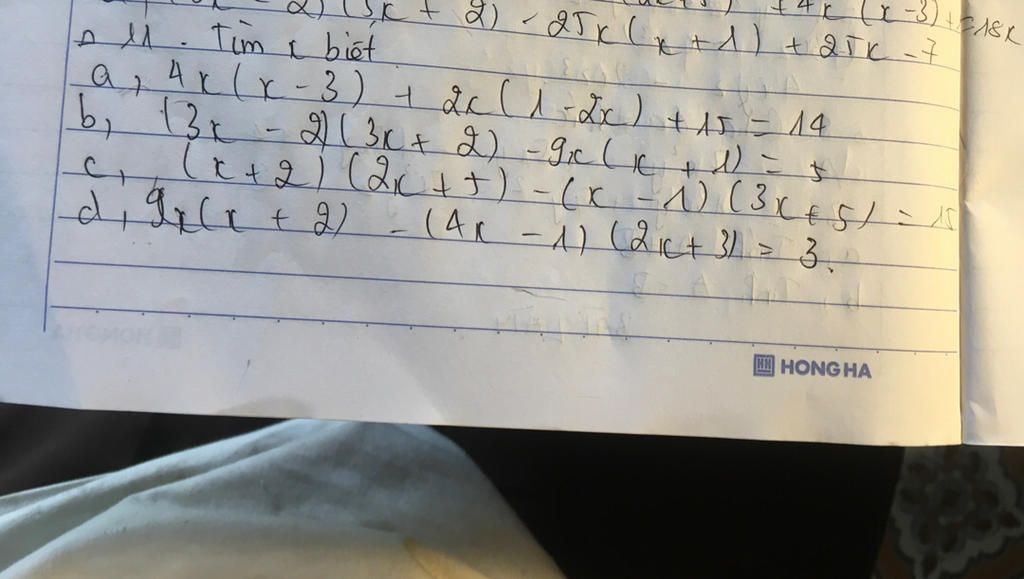 - 2) (5x + 2) - 25x(x + 1) + 25x - 7
+ 4x(x-3) + = 18x
11. Tìm x biết
a, 4x(x - 3) + 2x(1 - 2x) + 15 = 14
b, (3x - 2)(3x + 2) - 9x(x + 1) = 5
c, (x + 2)(2x + 5) - (x - 1)(3x + 5) = 15
d, 2x(x + 2) - (4x - 1)(2x + 3) = 3.
HONG HA